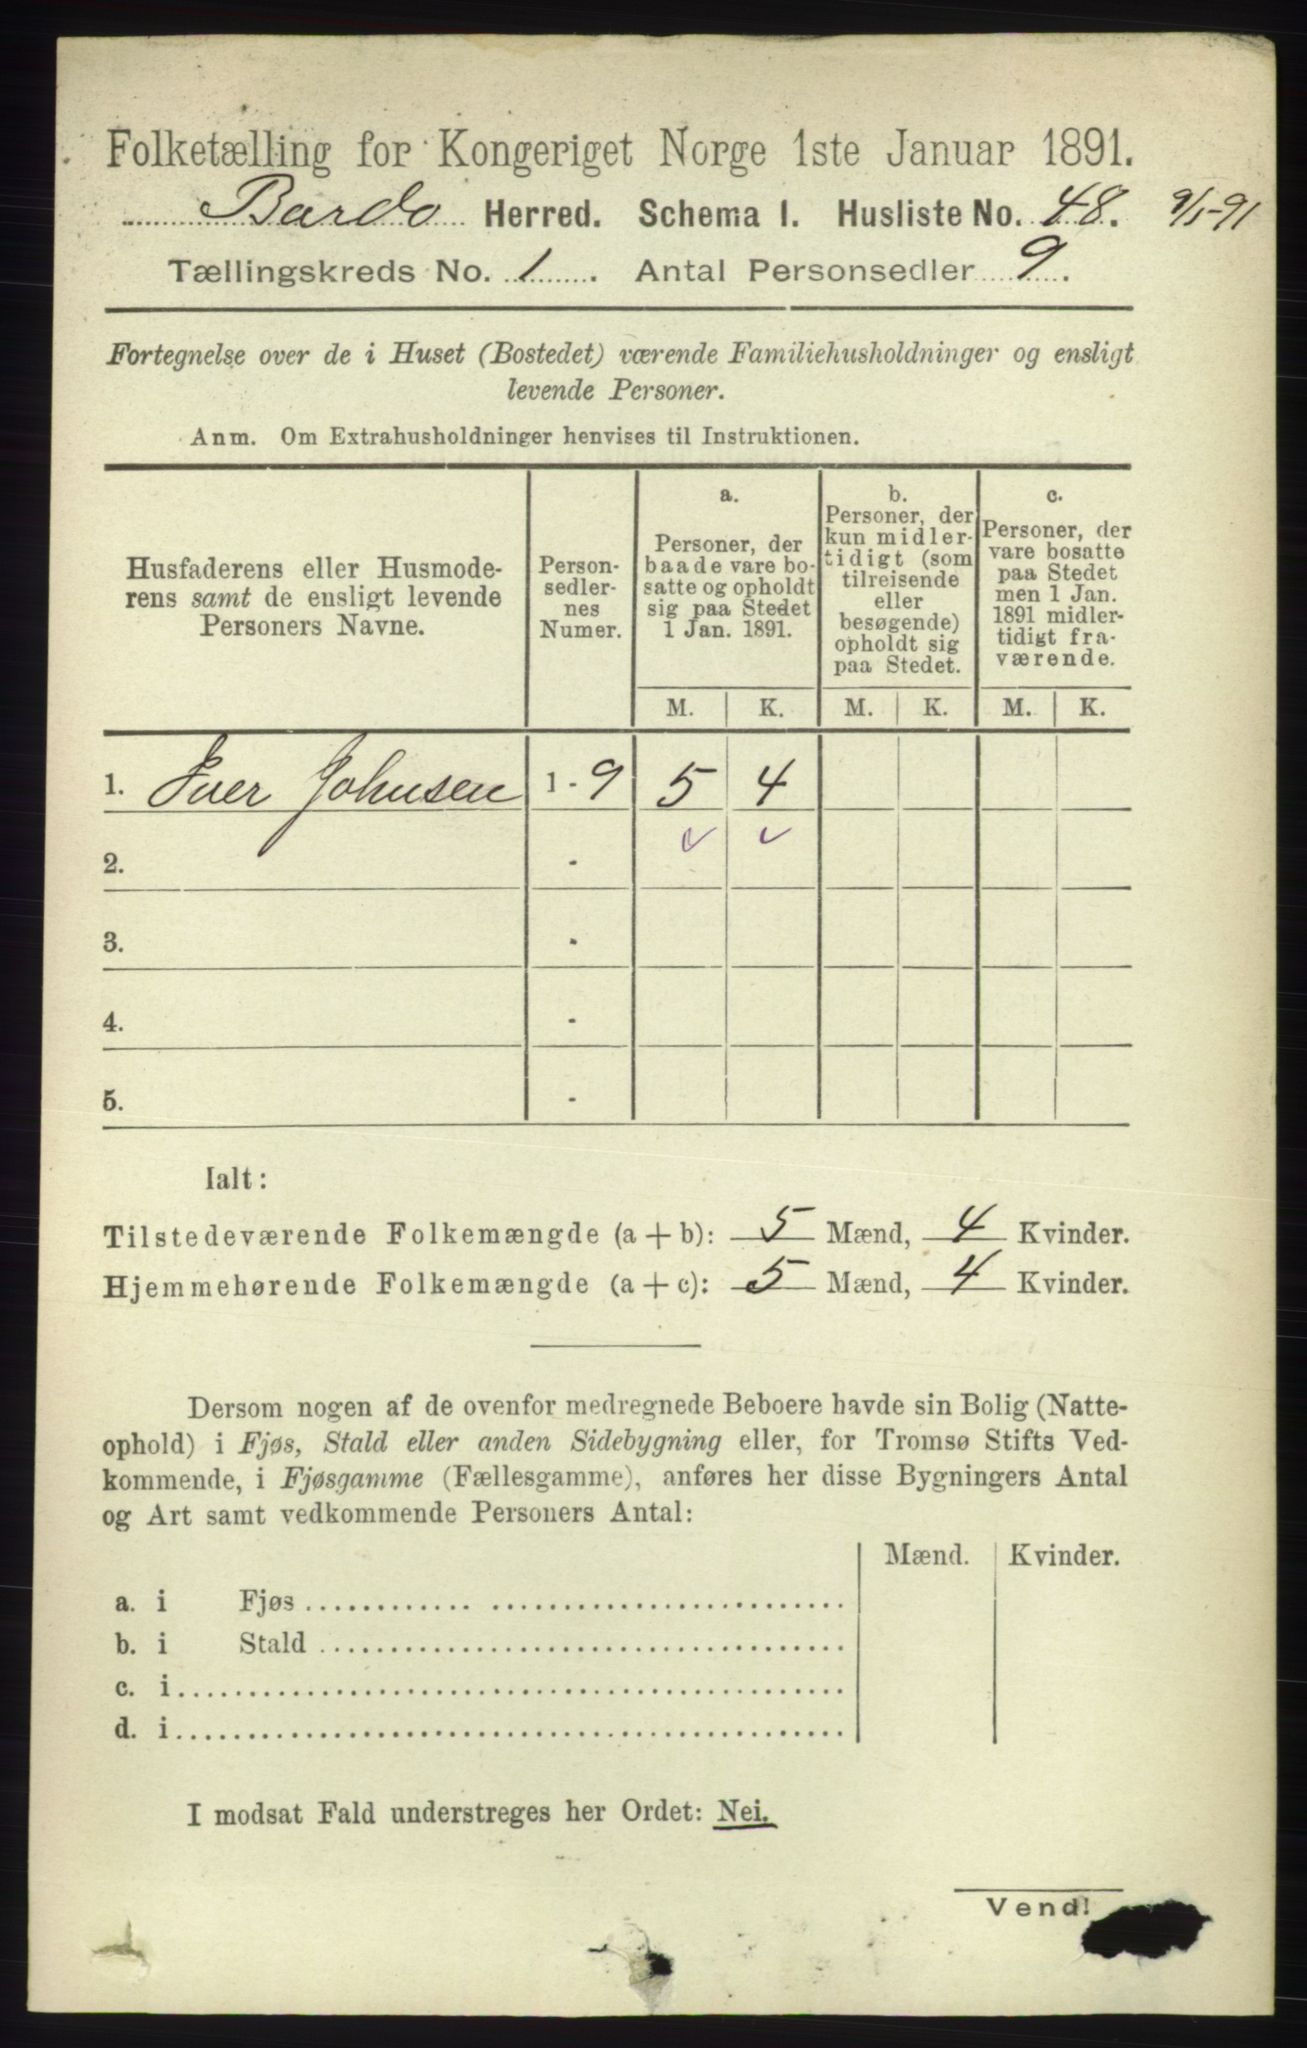 Folketælling for Kongeriget Norge 1ste Januar 1891.
Bardo Herred. Schema I. Husliste No. 48. 9/1-91
Tællingskreds No. 1. Antal Personsedler 9.
Fortegnelse over de i Huset (Bostedet) værende Familiehusholdninger og ensligt
levende Personer.
Anm. Om Extrahusholdninger henvises til Instruktionen.
Husfaderens eller Husmode-
rens samt de ensligt levende
Personers Navne.
Person-
sedler-
nes
Numer.
a.
Personer, der
baade vare bo-
satte og opholdt
sig paa Stedet
1 Jan. 1891.
b.
Personer, der
kun midler-
tidigt (som
tilreisende
eller
besøgende)
opholdt sig
paa Stedet.
c.
Personer, der
vare bosatte
paa Stedet
men 1 Jan.
1891 midler-
tidigt fra-
værende.
M. K. M. K. M. K.
1. Iver Johnsen 1 - 9 5 4
2. -
3. -
4. -
5. -
Ialt:
Tilstedeværende Folkemængde (a + b): 5 Mænd, 4 Kvinder.
Hjemmehørende Folkemængde (a + c): 5 Mænd, 4 Kvinder.
Dersom nogen af de ovenfor medregnede Beboere havde sin Bolig (Natte-
ophold) i Fjøs, Stald eller anden Sidebygning eller, for Tromsø Stifts Ved-
kommende, i Fjøsgamme (Fællesgamme), anføres her disse Bygningers Antal
og Art samt vedkommende Personers Antal:
Mænd. Kvinder.
a. i Fjøs
b. i Stald
c. i
d. i
I modsat Fald understreges her Ordet: Nei.
Vend!